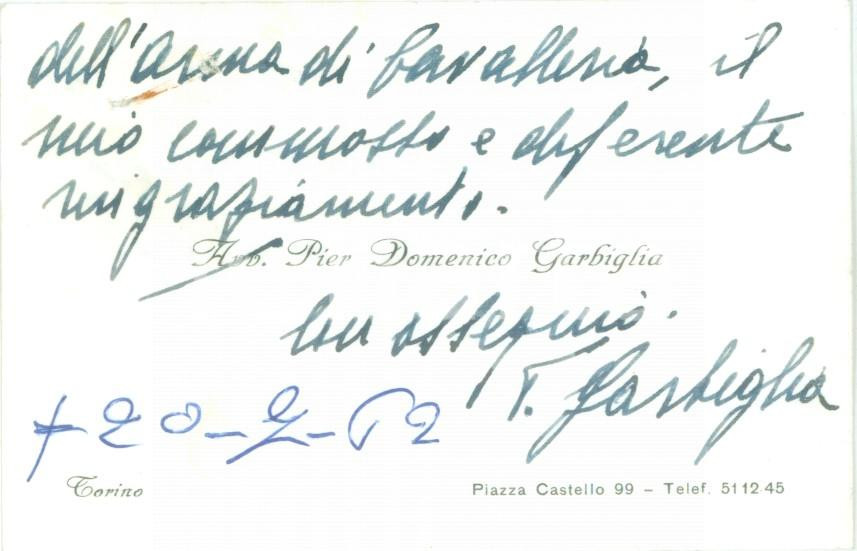 dell'Arma di Cavalleria, il
mio commosso e deferente
ringraziamento.
Avv. Pier Domenico Garbiglia
Con ossequio.
Garbiglia
Torino
Piazza Castello 99 – Telef. 5112-45